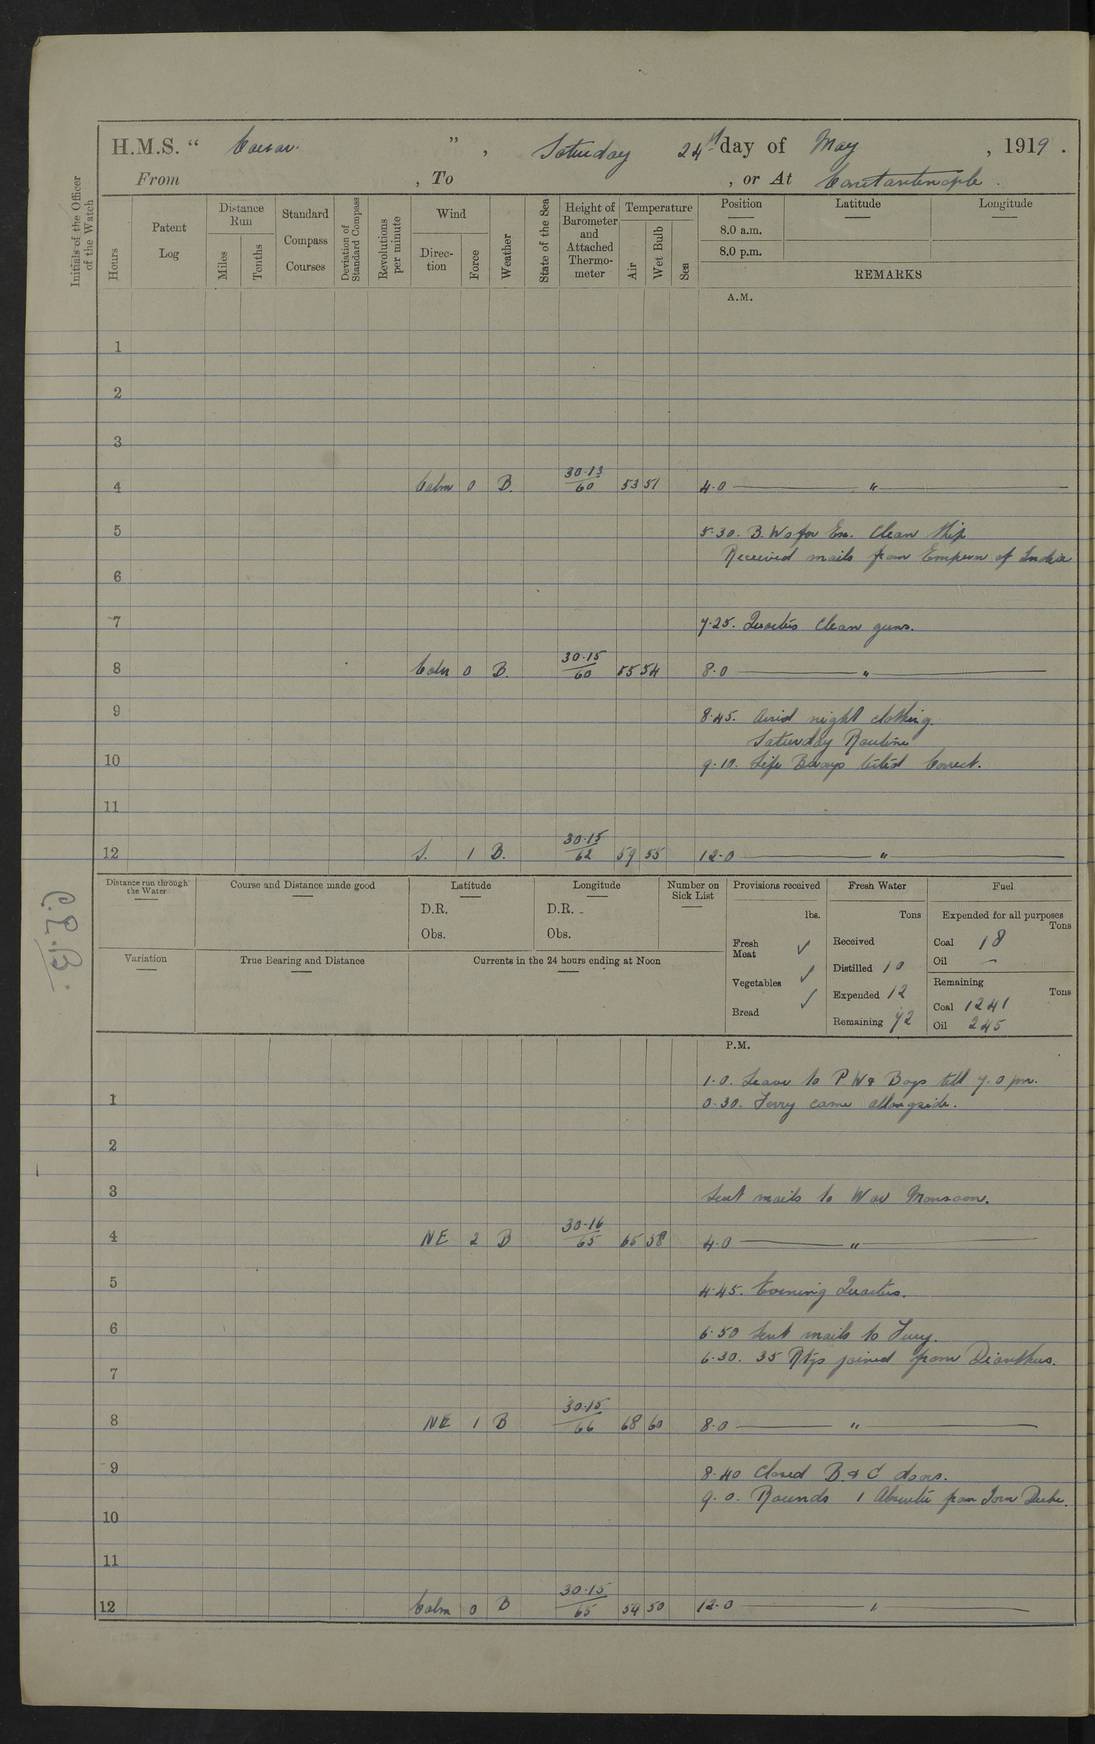 H.M.S. " Caesar. " , Saturday 24th day of May , 1919 .
From , To , or At Constantinople .
Initials of the Officer of the Watch
Hours
Patent Log
Distance Run
Miles
Tenths
Standard Compass Courses
Deviation of Standard Compass
Revolutions per minute
Wind
Direc-tion
Force
Weather
State of the Sea
Height of Barometer and Attached Thermo-meter
Temperature
Air
Wet Bulb
Sea
Position Latitude Longitude
8.0 a.m.
8.0 p.m.
REMARKS
A.M.
1
2
3
4 Calm 0 B. 30.13/60 53 51 4.0 "
5 5.30. B. Ws for Ex. Clean Ship
Received mails from Emperor of India
6
7 7.25. Quarters Clean guns.
8 Calm 0 B. 30.15/60 55 54 8.0 "
9 8.45. Aired night clothing.
Saturday Routine
10 9.10. Life Buoys tested Correct.
11
12 S. 1 B. 30.15/62 59 55 12.0 "
Distance run through the Water
Course and Distance made good
Latitude
D.R.
Obs.
Longitude
D.R.
Obs.
Number on Sick List
Provisions received
lbs.
Fresh Meat ✓
Vegetables ✓
Bread ✓
Fresh Water
Tons
Received
Distilled 10
Expended 12
Remaining 72
Fuel
Expended for all purposes
Tons
Coal 18
Oil —
Remaining
Tons
Coal 1241
Oil 245
Variation
True Bearing and Distance
Currents in the 24 hours ending at Noon
P.M.
1.0. Leave to P W & Boys till 7.0 pm.
1 0.30. Ferry came alongside.
2
3 Sent mails to War Monsoon.
4 NE 2 B 30.16/65 65 58 4.0 "
5 4.45. Evening Quarters.
6 6.50 Sent mails to Fury.
6.30. 35 Rtgs joined from Dianthus.
7
8 NE 1 B 30.15/66 68 60 8.0 "
9 8.40 Closed B & C doors.
9.0. Rounds 1 Absentee from
10
11
12 Calm 0 B 30.15/65 54 50 12.0 "